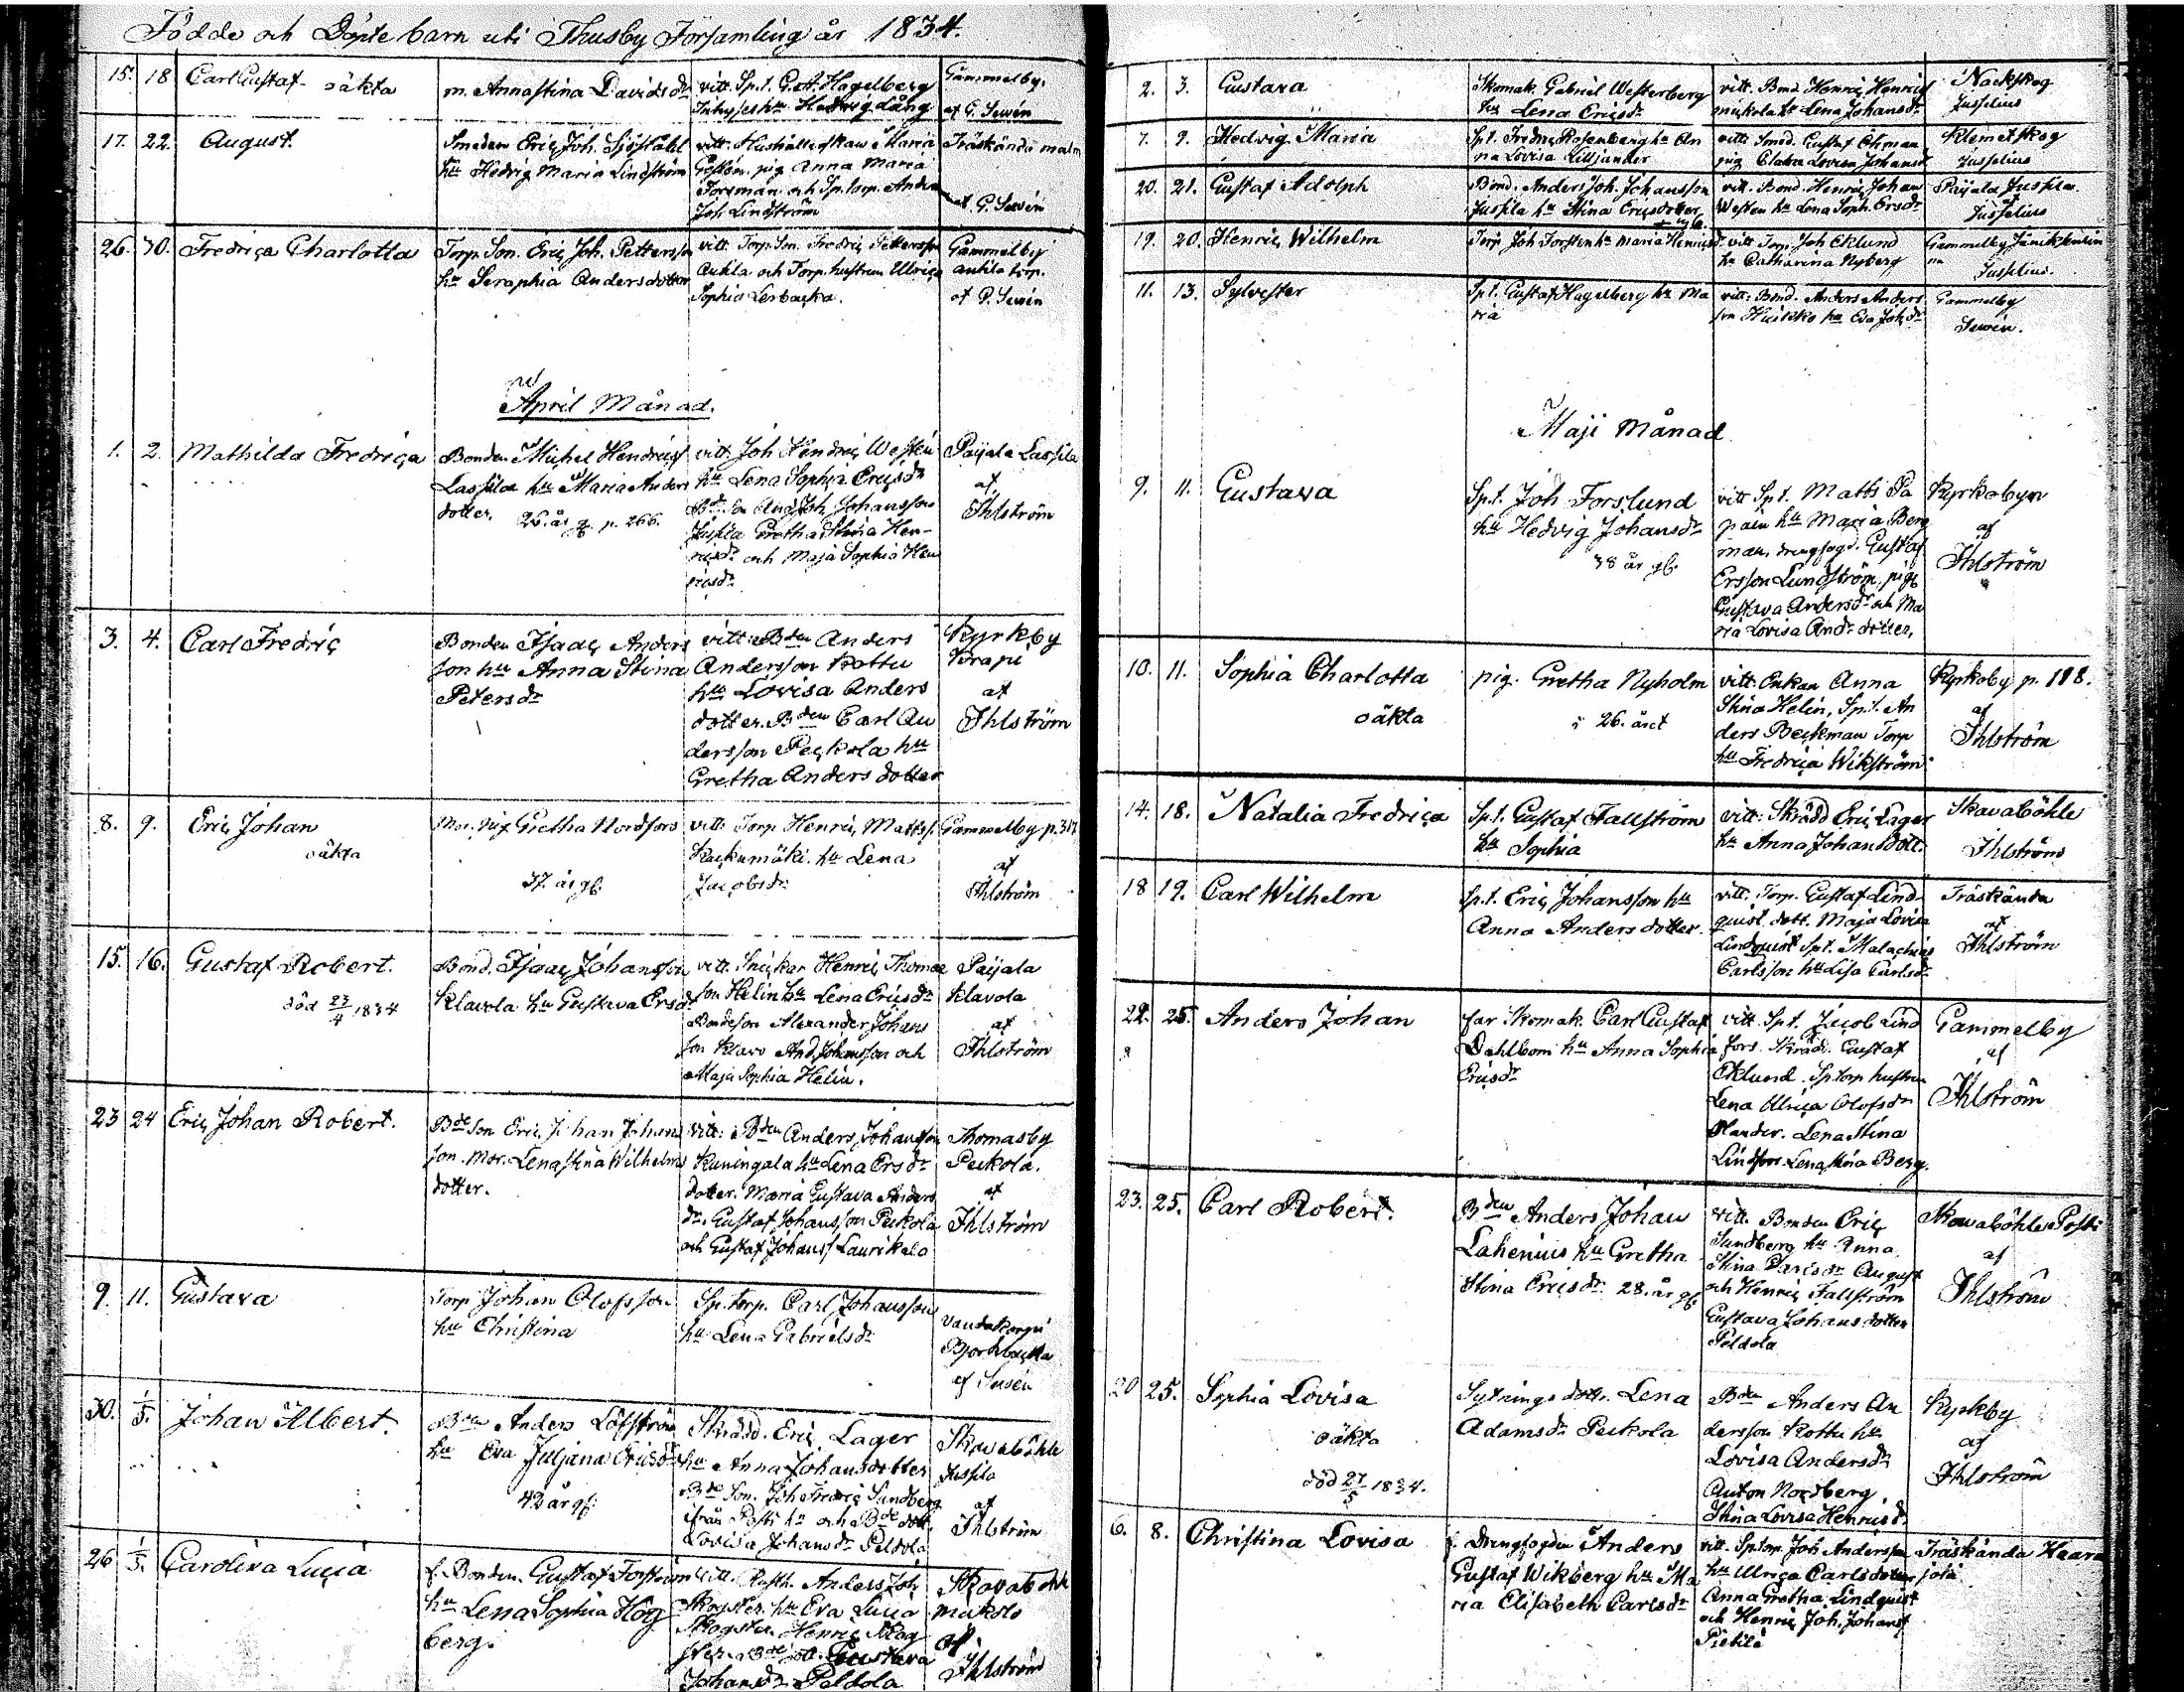 Födde och Döpte barn uti Thusby Församling år 1834.
15. 18 Carl Gustaf oäkta
m. Anna Stina Davidsdr
vitt. Sp.t. G. A. Hagelberg
Inhyses hu Hedvig Lång
Gammelby.
af G. Sevén
17. 22. August.
Smeden Eriç Joh. Sjöståhl
hu Hedvig Maria Lindström
vitt. Hushållerskan Maria
pig. Anna Maria
Forsman och Sp. torp. Anders
Joh. Lindström
Träskända malm
af G. Sevén
26. 30. Fredriça Charlotta
Torp. Son. Eriç Joh. Pettersson
hu Seraphia Andersdotter
vitt. Torp. Son. Fredriç Pettersson
Ankla och Torp. hustrun Ulriça
Sophia Lerbacka.
Gammelby
ankila torp.
af G. Sevén
April Månad.
1. 2. Mathilda Fredriça
Bonden Michel Hendriçss
Lassila hu Maria Anders
dotter. 26. år g. p. 266.
vitt. Joh Hendriç Westén
hu Lena Sophia Ericsdr
Bde Son And. Joh Johansson
Jussila Gretha Stina Hen-
ricsdr och Maja Sophia Hen
ricsdr
Paijala Lassila
af
Ihlström
3. 4. Carl Fredriç
Bonden Isaaç Anders
son hu Anna Stina
Petersdr
vitt. Bden Anders
Andersson Rottu
hu Lovisa Anders
dotter. Bden Carl An
dersson Peckola hu
Gretha Anders dotter
Kyrkby
Krapi
af
Ihlström
8. 9. Eriç Johan
oäkta
Mor. pig Gretha Nordfors
37. år gl.
vitt. Torp Henriç Mattss.
Kaskumäki. hu Lena
Jacobsdr
Gammelby p. 317
af
Ihlström
15. 16. Gustaf Robert.
död 23/4 1834
Bond. Isaaç Johansson
Klavola hu Gustava Ersdr
vitt. Sniçkar Henriç Thomas
son Helin hu Lena Ericsdr
Bondeson Alexander Johans
son Klavo And. Johansson och
Maja Sophia Helin.
Paijala
Klavola
af
Ihlström
23 24 Eriç Johan Robert.
Bde Son Eriç Johan Johans
son. Mor. Lena Stina Wilhelms
dotter.
vitt. Bden Anders Johansson
Kuningala hu Lena Ersdr
dotter. Maria Gustava Anders
dr. Gustaf Johansson Peckola
och Gustaf Johanss Laurikala
Thomasby
Peckola.
af
Ihlström
9. 11. Gustava
Torp Johan Olofsson
hu Christina
Sp. torp. Carl Johansson
hu Lena Gabrielsdr
Vandakorpi
Björkbacka
af Sevén
30. 1/5. Johan Albert.
Bden Anders Löfström
hu Eva Juljana Ericsdr
42 år gl.
Skrädd. Eriç Lager
hu Anna Johansdotter
Bde Son. Joh Fredriç Sundberg
ifrån Posti hu och Bde dott.
Lovisa Johansdr Peldola
Skavaböhle
Jussila
af
Ihlström
26 1/5. Carolina Luçia
f. Bonden. Gustaf Forsström
hu Lena Sophia Hög
berg.
vitt. Rusth. Anders Joh
Skogster. hu Eva Luçia
Skogster. Henriç Skog
ster. Bde dott. Gustava
Johansdr Peldola
Skavaböhle
Mickola
af
Ihlström
2. 3. Gustava
Skomak. Gabriel Westerberg
hu Lena Ericsdr
vitt. Bond Henriç Henriçss
mickola hu Lena Johansdr
Nackskog
Jusselius
7. 9. Hedvig Maria
Sp.t. Fredriç Rosenberg hu An
na Lovisa Liljander
vitt. Smed. Gustaf Öhman
pig Clara Lovisa Johansdr
Klemetskog
Jusselius
20. 21. Gustaf Adolph
Bond. Anders Joh. Johansson
Jussila hu Stina Ericsdotter
vitt. Bond. Henriç Johan
Westen hu Lena Soph. Ersdr
Paijala Jussila
af
Jusselius
19. 20. Henriç Wilhelm
Torp Joh Forsten hu Maria Henricsdr
vitt. Torp. Joh Eklund
hu Catharina Nyberg
Gammelby
Jusselius.
11. 13. Sylvester
Sp.t. Gustaf Hagelberg hu Ma
ria
vitt. Bond. Anders Anders
son Huikko hu Eva Joh.dr
Gammelby
Sevén.
Maji Månad
9. 11. Gustava
Sp.t. Joh Forslund
hu Hedvig Johansdr
38 år gl.
vitt Sp.t. Matts Pa
pain hu Maria Berg
man, drengfogd. Gustaf
Ersson Lundström, pig.
Gustava Andersdr och Ma
ria Lovisa Andr. dotter,
Kyrkobyn
af
Ihlström
10. 11. Sophia Charlotta
oäkta
pig. Gretha Nyholm
i 26. året
vitt. Enkan Anna
Stina Helin, Sp.t. An
ders Beckman Torp
hu Fredriça Wikström
Kyrkoby p. 118.
af
Ihlström
14. 18. Natalia Fredriça
Sp.t. Gustaf Fallström
hu Sophia
vitt. Skrädd Eriç Lager
hu Anna Johansdott.
Skavaböhle
Ihlström
18 19. Carl Wilhelm
Sp.t. Eriç Johansson hu
Anna Anders dotter.
vitt. Torp. Gustaf Lind
quist dott. Maja Lovisa
Lindquist Sp.t. Malachias
Carlsson hu Lisa Carlsdr
Träskända
af
Ihlström
22. 25. Anders Johan
far Skomak. Carl Gustaf
Dahlbom hu Anna Sophia
Ericsdr
vitt. Sp.t. Jacob Lind
fors. Skrädd. Gustaf
Eklund. Sp torp hustrun
Lena Ulriça Olofsdr
Olander. Lena Stina
Lindfors. Lena Stina Berg.
Gammelby
af
Ihlström
23. 25. Carl Robert.
Bden Anders Johan
Lahenius hu Gretha
Stina Ericsdr 28. år gl.
vitt. Bonden Eriç
Sundberg hu Anna
Stina Carlsdr August
och Henriç Fallström
Gustava Johans dotter
Peldola
Skavaböhle Posti
af
Ihlström
20 25. Sophia Lovisa
oäkta
död 27/5 1834.
Sytnings dottr. Lena
Adamsdr Peckola
Bden Anders An
dersson Rottu hu
Lovisa Andersdr
Anton Nordberg
Stina Lovisa Henricsdr
Kyrkby
af
Ihlström
6. 8. Christina Lovisa
f. Drengfogden Anders
Gustaf Wikberg hu Ma
ria Elisabeth Carlsdr
vitt. Sp.torp. Joh Andersson
hu Ulriça Carlsdotter
Anna Gretha Lindquist
och Henriç Joh. Johanss
Pietilä
Träskända Haara
jola